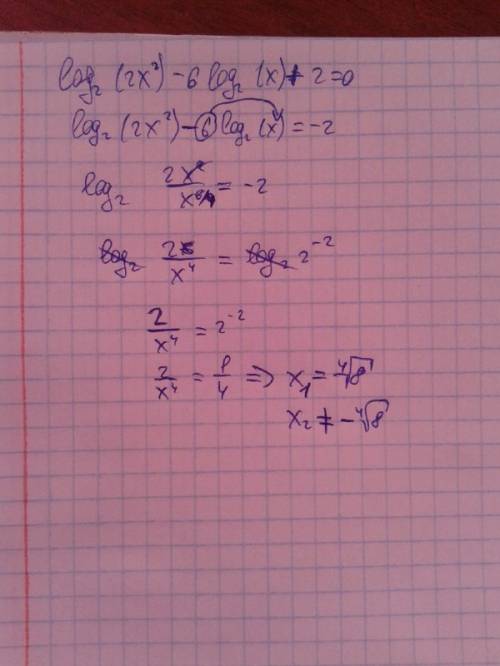 log₂ (2x²) - 6 log₂ (x) + 2 = 0
log₂ (2x²) - 6 log₂ (x) = -2
log₂ 2x²/x⁶ = -2
log₂ 2/x⁴ = log₂ 2⁻²
2/x⁴ = 2⁻²
2/x⁴ = 1/4 => x₁ = ⁴√8
x₂ ≠ -⁴√8